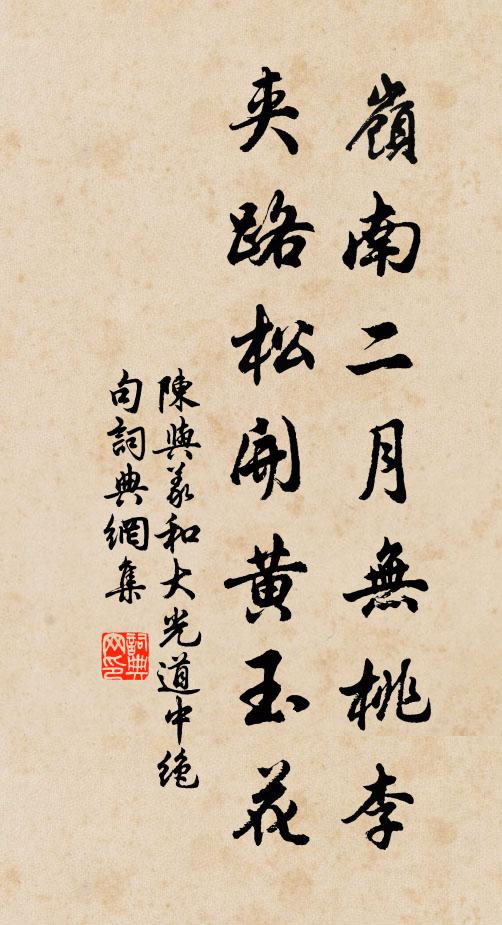 嶺南二月無桃李
夾路松開黃玉花
陳與義和大光道中絶
句詞典網集
詞典
网印